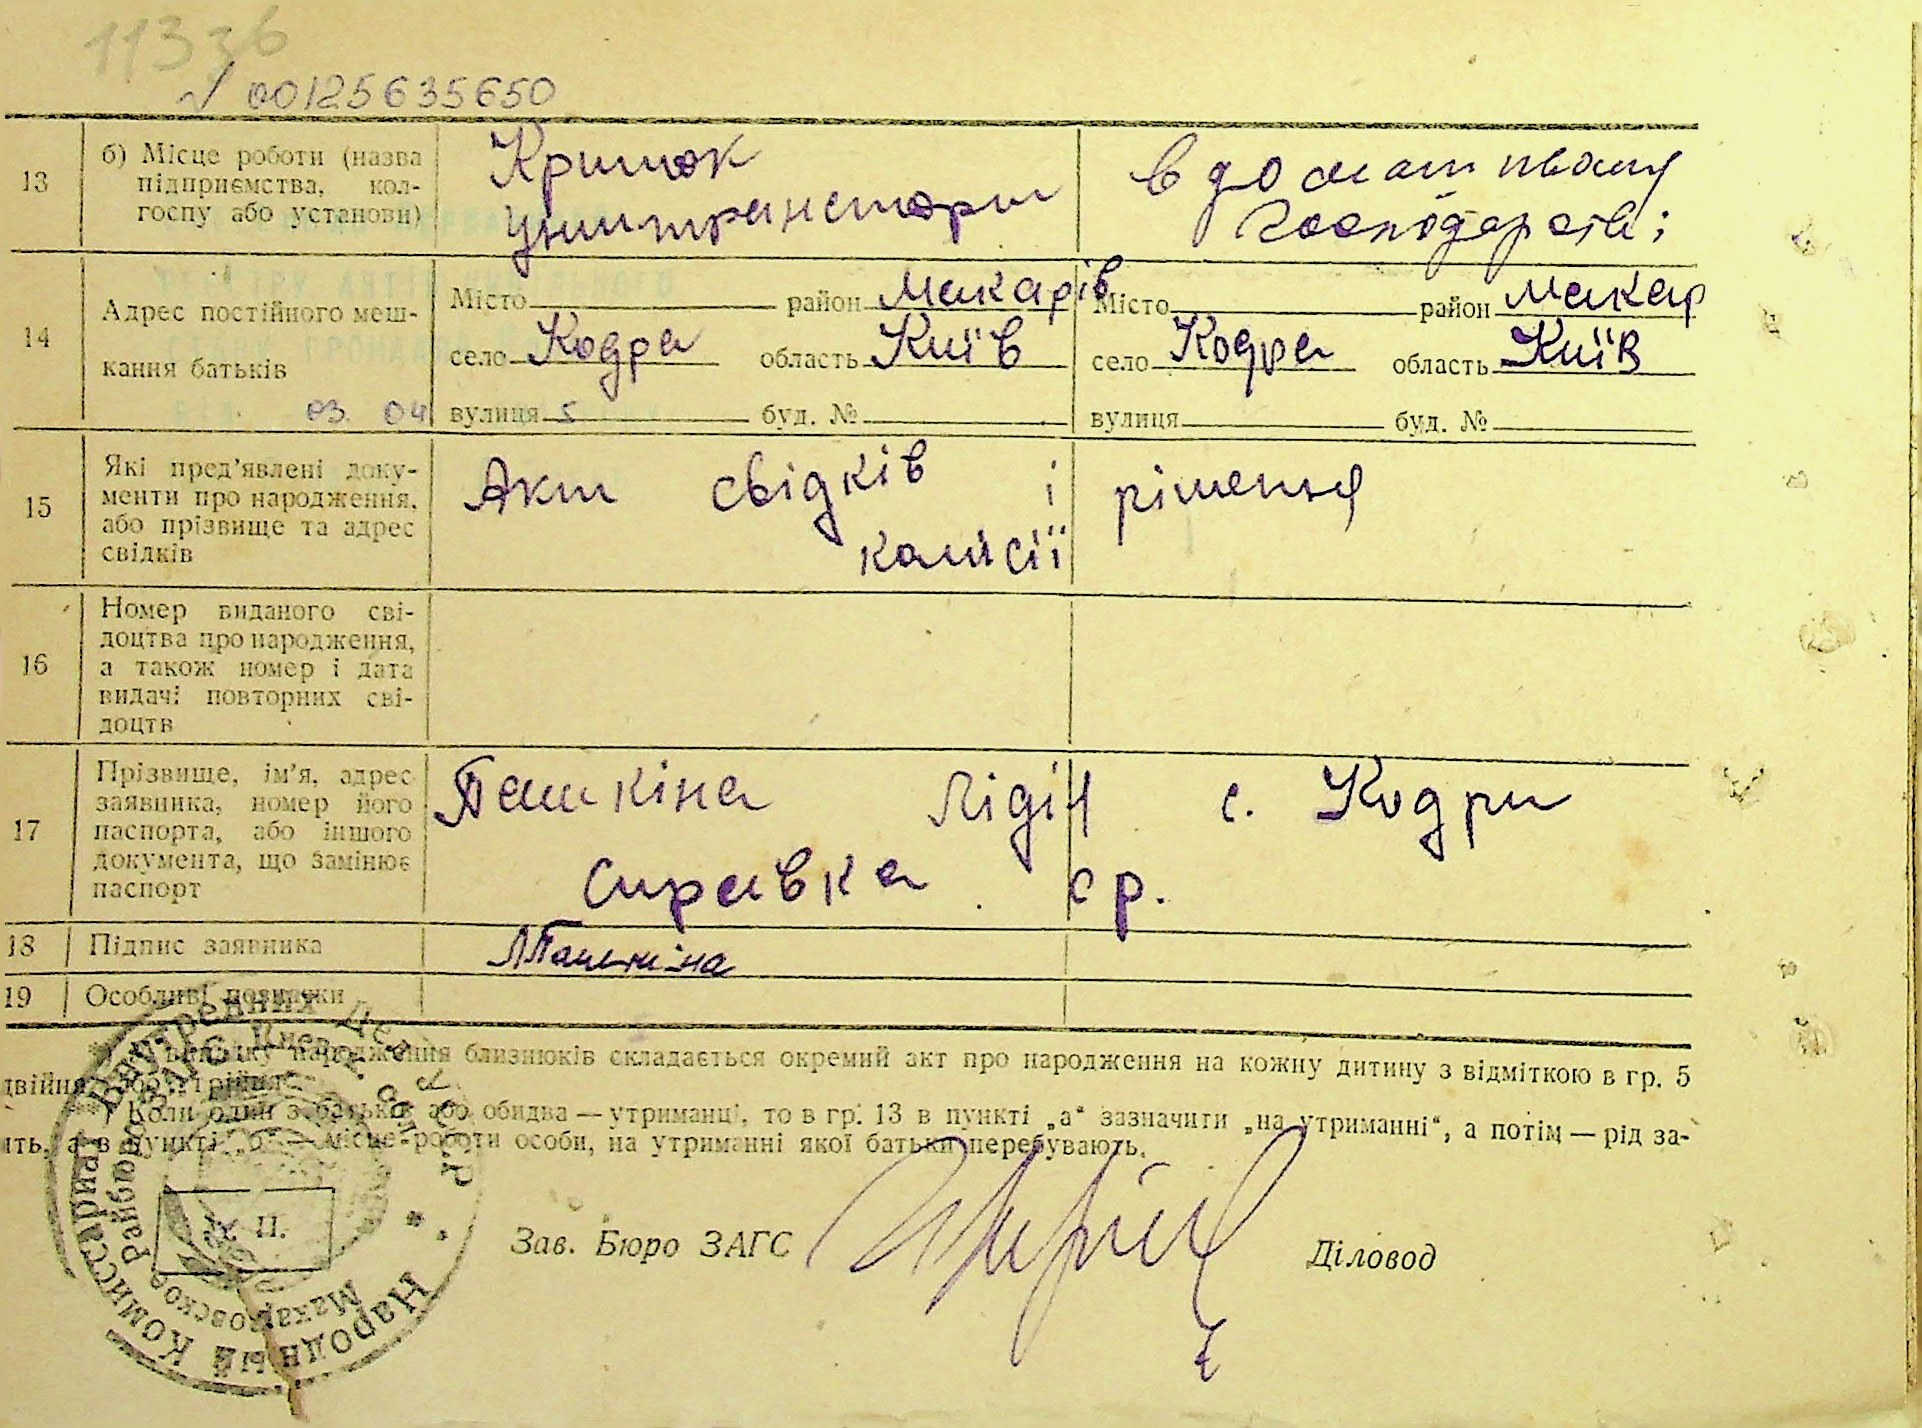 00125635650
13
б) Місце роботи (назва
підприємства, кол-
госпу або установи)
в домашньому
господарстві
14
Адрес постійного меш-
кання батьків
03. 04
Місто район Макарів
село Кодра область Київ
вулиця 5 буд. №
Місто район Макар
село Кодра область Київ
вулиця буд. №
15
Які пред'явлені доку-
менти про народження,
або прізвище та адрес
свідків
Акт свідків і рішення
комісії
16
Номер виданого сві-
доцтва про народження,
а також номер і дата
видачі повторних сві-
доцтв
17
Прізвище, ім'я, адрес
заявника, номер його
паспорта, або іншого
документа, що замінює
паспорт
Пашкіна Лідія с. Кодри
Справка с р.
18
Підпис заявника
ЛПашкіна
19
Особливі
народження близнюків складається окремий акт про народження на кожну дитину з відміткою в гр. 5
двійня
Коли один з батьків або обидва — утриманці, то в гр. 13 в пункті „а“ зазначити „на утриманні“, а потім — рід за-
ять, а в пункті „б“ — місце роботи особи, на утриманні якої батьки перебувають.
Народный Комиссариат Внутренних Дел УССР
Зав. Бюро ЗАГС
Діловод